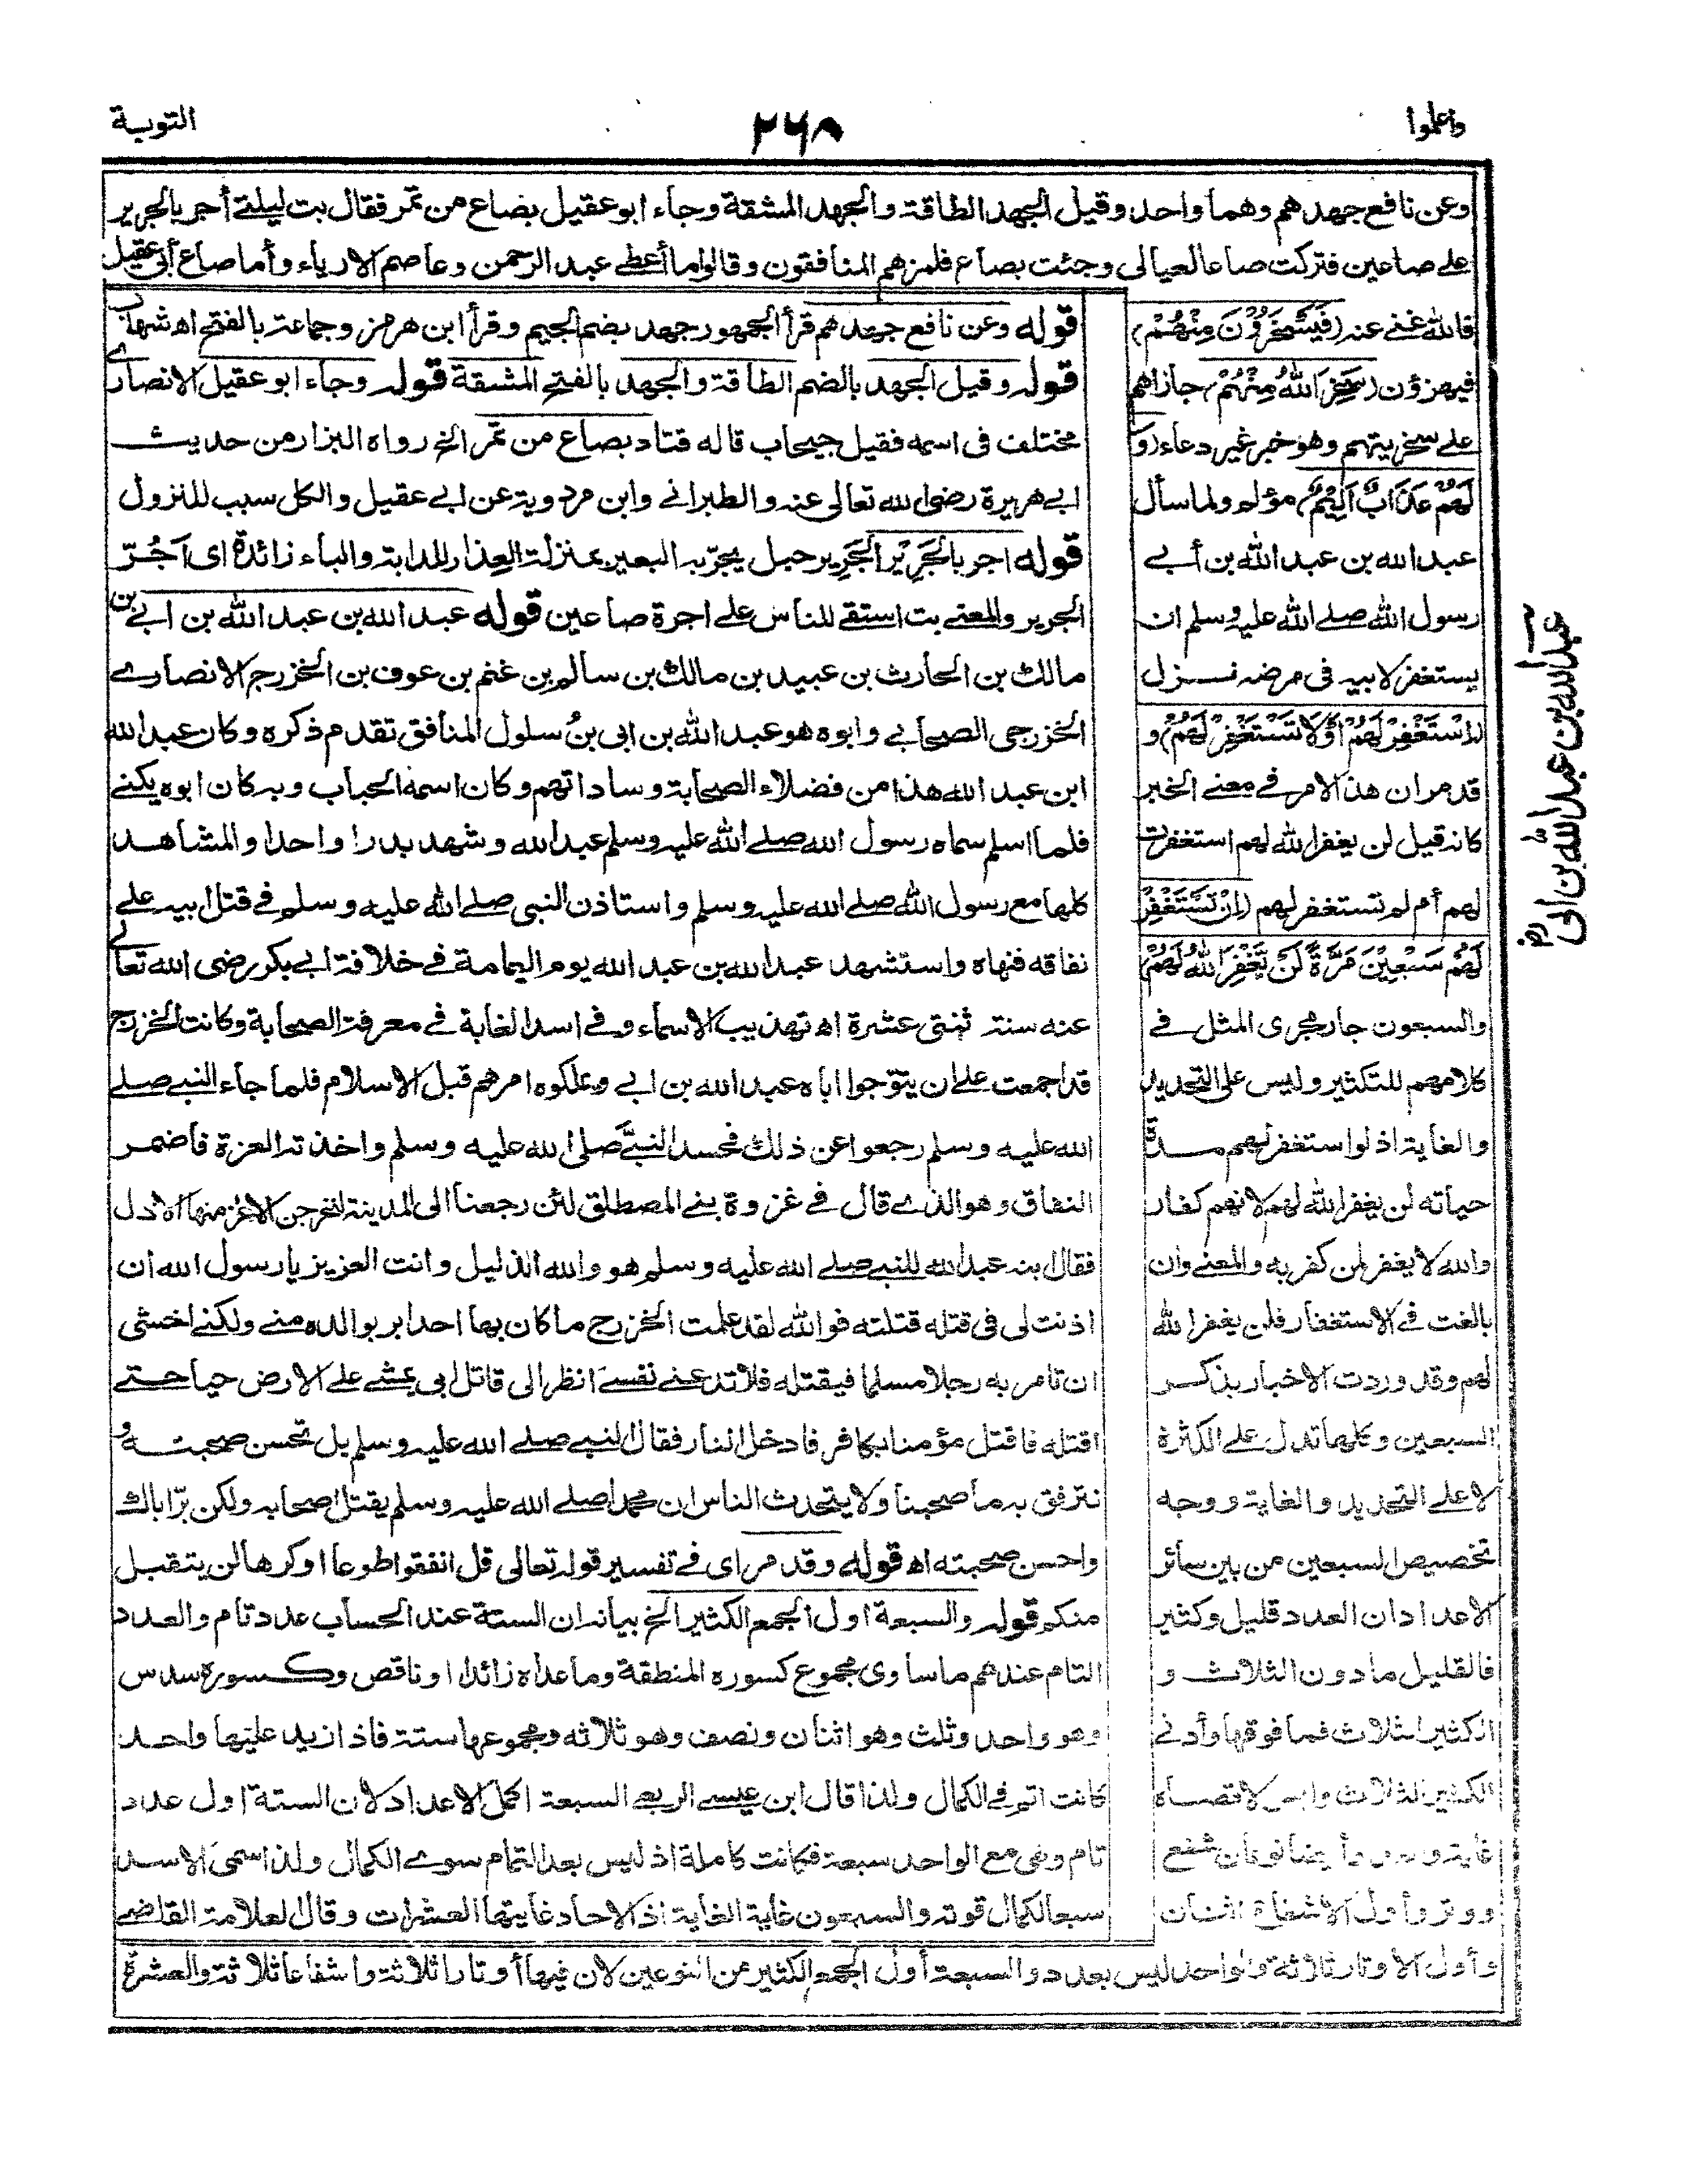 واعلموا
٢٦٨
التوبة
وعن نافع جهدهم وهما واحد وقيل الجهد الطاقة والجهد المشقة وجاء ابو عقيل بضاع من تمر فقال بت ليلتى أجر بالجرير
على صاعين فتركت صاعا لعيالى وجئت بصاع فلمزهم المنافقون وقالوا ما أعطے عبد الرحمن وعاصم الا رياء وأما صاع أبى عقيل
فالله غنے عنه (فَيَسْخَرُوْنَ مِنْهُمْ)
فيهزؤن (سَخِرَ اللهُ مِنْهُمْ) جازاهم
علے سخريتهم وهو خبر غير دعاء (وَ
لَهُمْ عَذَابٌ اَلِيْمٌ) مؤلم ولما سأل
عبد الله بن عبد الله بن أبے
رسول الله صلے الله عليه وسلم ان
يستغفر لابيه فى مرضه نزل
(اِسْتَغْفِرْ لَهُمْ اَوْلَا تَسْتَغْفِرْ لَهُمْ) و
قد مر ان هذا الامر فے معنے الخبر
كانه قيل لن يغفر الله لهم استغفرت
لهم أم لم تستغفر لهم (اِنْ تَسْتَغْفِرْ
لَهُمْ سَبْعِيْنَ مَرَّةً لَنْ يَّغْفِرَ اللهُ لَهُمْ)
والسبعون جار مجرى المثل فے
كلامهم للتكثير وليس على التحديد
والغاية اذ لو استغفر لهم مدة
حياته لن يغفر الله لهم لانهم كفار
والله لا يغفر لمن كفر به والمعنے وان
بالغت فے الاستغفار فلن يغفر الله
لهم وقد وردت الاخبار بذكر
السبعين وكلها تدل على الكثرة
لا على التحديد والغاية ووجه
تخصيص السبعين من بين سائر
الاعداد ان العدد قليل وكثير
فالقليل ما دون الثلاث و
الكثير الثلاث فما فوقها وأدنے
الكثير الثلاث وليس لاقصاه
غاية والعدد أيضا نوعان شفع
ووتر وأول الاشفاع اثنان
قوله وعن نافع جهدهم قرأ الجمهور جهد بضم الجيم وقرأ ابن هرمز وجماعة بالفتح اه شهاب
قوله وقيل الجهد بالضم الطاقة والجهد بالفتح المشقة قوله وجاء ابو عقيل الانصارے
مختلف فى اسمه فقيل جيحاب قاله قتاد بصاع من تمر الخ رواه البزار من حديث
ابے هريرة رضى الله تعالى عنه والطبرانے وابن مردوية عن ابے عقيل والكل سبب للنزول
قوله اجر بالجَرِيْر الجَرِير حبل يجرّ به البعير بمنزلة العِذار للدابة والباء زائدة اى اَجُرّ
الجرير والمعنے بت استقے للناس علے اجرة صاعين قوله عبد الله بن عبد الله بن ابے بن
مالك بن الحارث بن عبيد بن مالك بن سالم بن غنم بن عوف بن الخزرج الانصارے
الخزرجى الصحابے وابوه هو عبد الله بن ابى بنُ سلول المنافق تقدم ذكره وكان عبد الله
ابن عبد الله هذا من فضلاء الصحابة وساداتهم وكان اسمه الحباب وبه كان ابوه يكنے
فلما اسلم سماه رسول الله صلے الله عليه وسلم عبد الله وشهد بدرا واحدا والمشاهد
كلها مع رسول الله صلے الله عليه وسلم واستاذن النبى صلے الله عليه وسلم فے قتل ابيه علے
نفاقه فنهاه واستشهد عبد الله بن عبد الله يوم اليمامة فے خلافة ابے بكر رضى الله تعالے
عنه سنة ثنتى عشرة اه تهذيب الاسماء وفے اسد الغابة فے معرفة الصحابة وكانت الخزرج
قد اجمعت علے ان يتوجوا اباه عبد الله بن ابے ويملكوه امرهم قبل الاسلام فلما جاء النبے صلے
الله عليه وسلم رجعوا عن ذلك فحسد النبىَّ صلى الله عليه وسلم واخذته العزة فاضمر
النفاق وهو الذے قال فے غزوة بنے المصطلق لئن رجعنا الى المدينة ليخرجن الاعز منها الاذل
فقال ابنه عبد الله للنبے صلے الله عليه وسلم هو والله الذليل وانت العزيز يا رسول الله ان
اذنت لى فى قتله قتلته فوالله لقد علمت الخزرج ما كان بها احد ابر بوالده منے ولكنے اخشى
ان تامر به رجلا مسلما فيقتله فلا تدعنے نفسے انظر الى قاتل ابى يمشے علے الارض حيا حتے
اقتله فاقتل مؤمنا بكافر فادخل النار فقال النبے صلے الله عليه وسلم بل تحسن صحبته و
نترفق به ما صحبنا ولا يتحدث الناس ان محمدا صلے الله عليه وسلم يقتل اصحابه ولكن برّ اباك
واحسن صحبته اه قوله وقد مر اى فے تفسير قوله تعالى قل انفقوا طوعا او كرها لن يتقبل
منكم قوله والسبعة اول الجمع الكثير الخ بيانه ان الستة عند الحساب عدد تام والعدد
التام عندهم ما ساوى مجموع كسوره المنطقة وما عداه زائد او ناقص وكسوره سدس
وهو واحد وثلث وهو اثنان ونصف وهو ثلاثه ومجموعها ستة فاذا زيد عليها واحد
كانت اتم فے الكمال ولذا قال ابن عيسے الربعے السبعة اكمل الاعداد لان الستة اول عدد
تام وهى مع الواحد سبعة فكانت كاملة اذ ليس بعد التمام سوے الكمال ولذا سمى الاسد
سبعا لكمال قوته والسبعون غاية الغاية اذ الاحاد غايتها العشرات وقال العلامة القاضے
وأول الاوتار ثلاثة والواحد ليس بعدد والسبعة أول الجمع الكثير من النوعين لان فيها أوتارا ثلاثة واشفاعا ثلاثة والعشرة
عبد الله بن عبد الله بن ابى رضـ